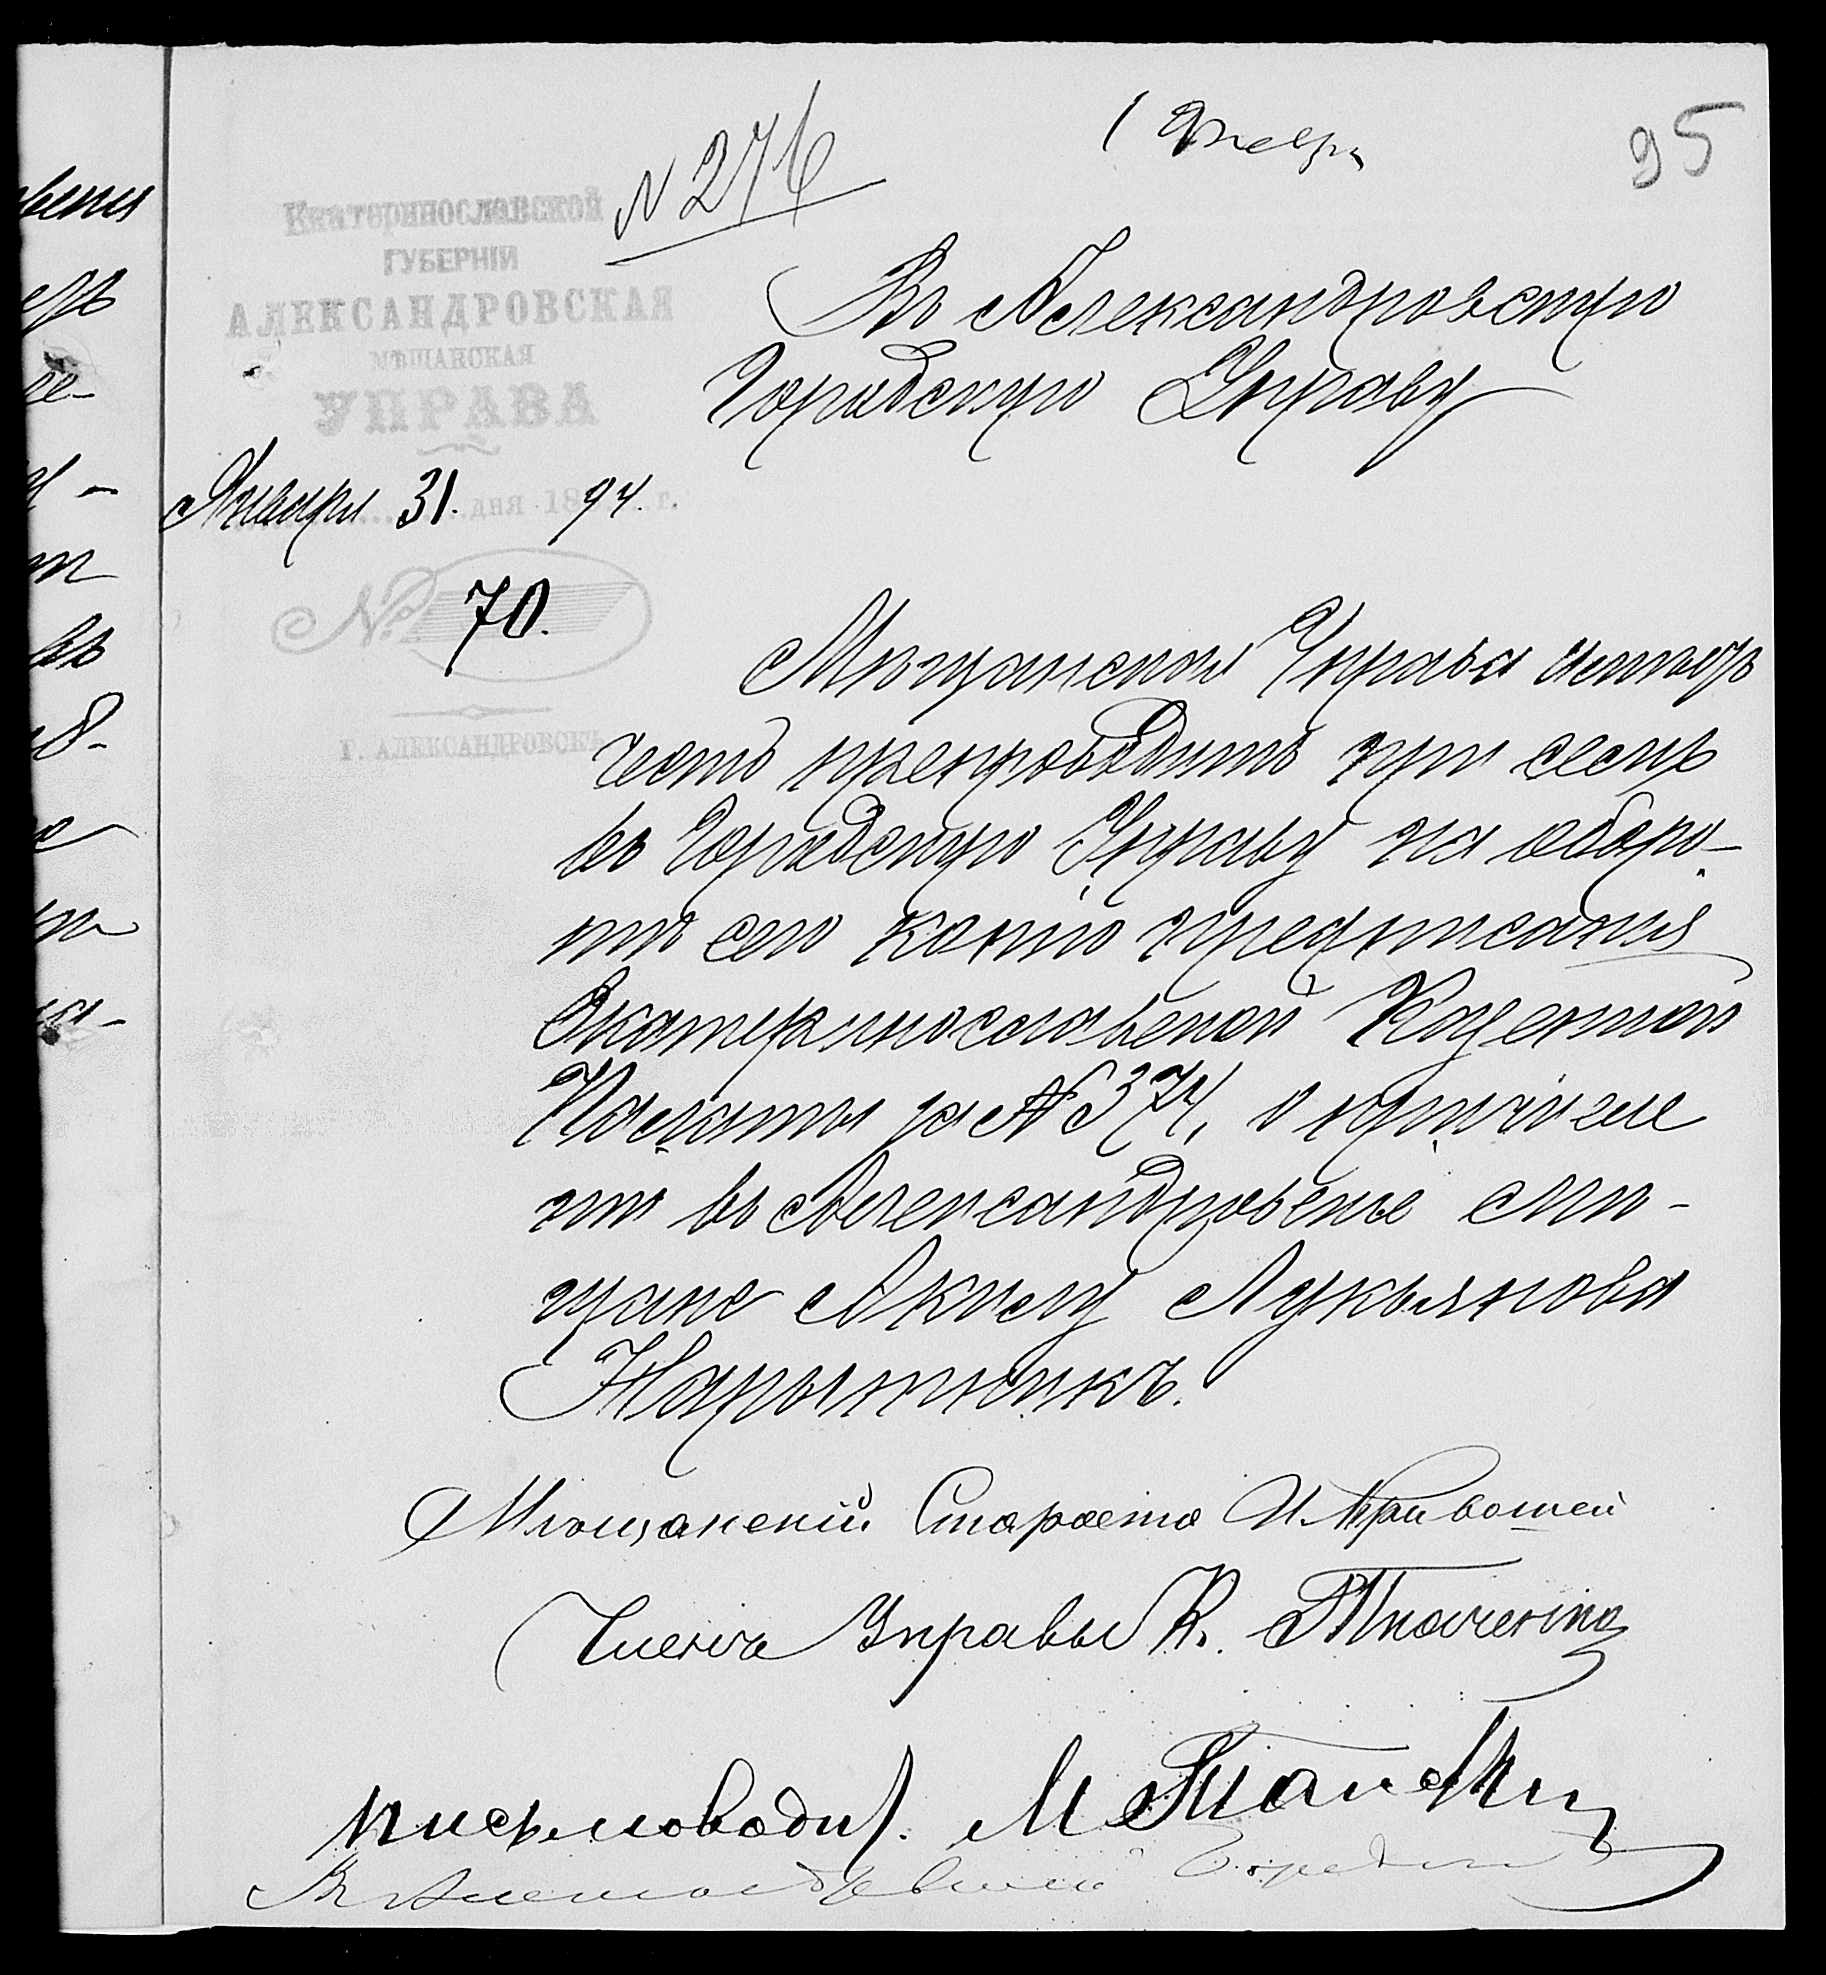 95
1 Февр.
№ 276
Екатеринославской
ГУБЕРНІИ
АЛЕКСАНДРОВСКАЯ
МѢЩАНСКАЯ
УПРАВА
Января 31. дня 1894. г.
№ 70.
Г. АЛЕКСАНДРОВСКЪ
Въ Александровскую
Городскую Управу
Мѣщанская Управа имѣетъ
честь препроводить при семъ
въ Городскую Управу на оборо-
тѣ сего копію предписанія
Екатеринославской Казенной
Палаты за № 374, о причисле
ніи въ Александровскіе мѣ-
щане Акилу Лукьянова
Нарытникъ.
Мѣщанскій Староста И. Кривошей
Членъ Управы К. Ткаченко
Письмоводит.